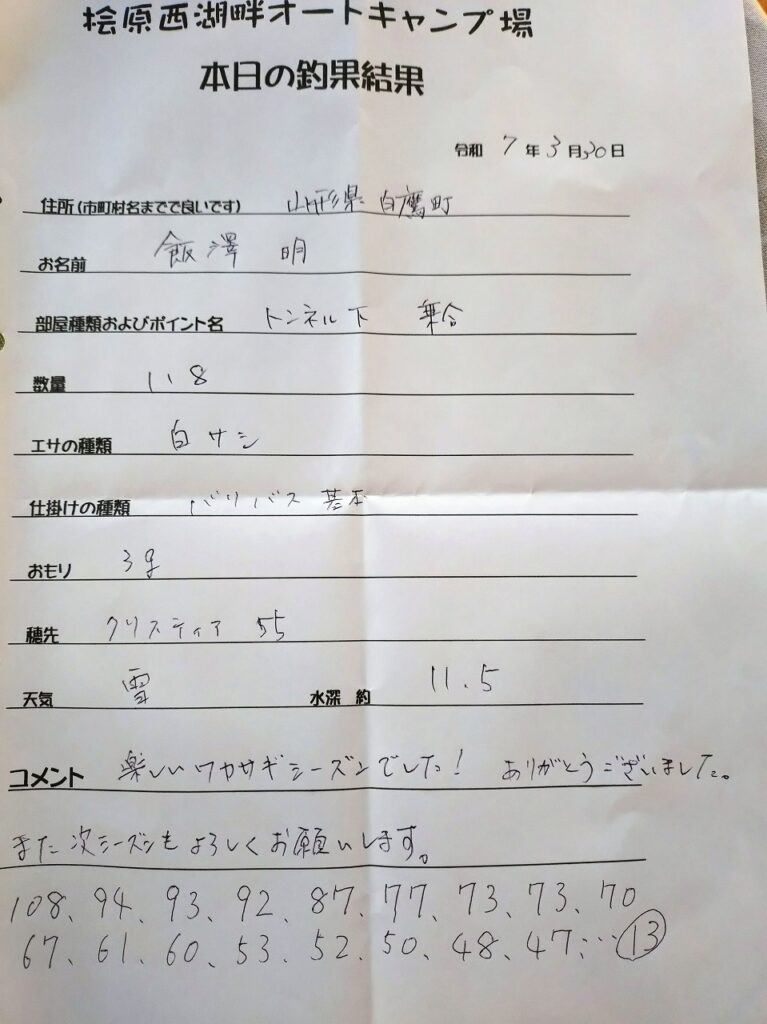 桧原西湖畔オートキャンプ場
本日の釣果結果
令和 7 年 3 月 30 日
住所(市町村名までで良いです) 山形県 白鷹町
お名前 飯澤 明
部屋種類およびポイント名 トンネル下 乗合
数量 118
エサの種類 白サシ
仕掛けの種類 バリバス 基本
おもり 3g
穂先 クリスティア 55
天気 雪 水深 約 11.5
コメント 楽しいワカサギシーズンでした! ありがとうございました。
また次シーズンもよろしくお願いします。
108、94、93、92、87、77、73、73、70
67、61、60、53、52、50、48、47、…⑬